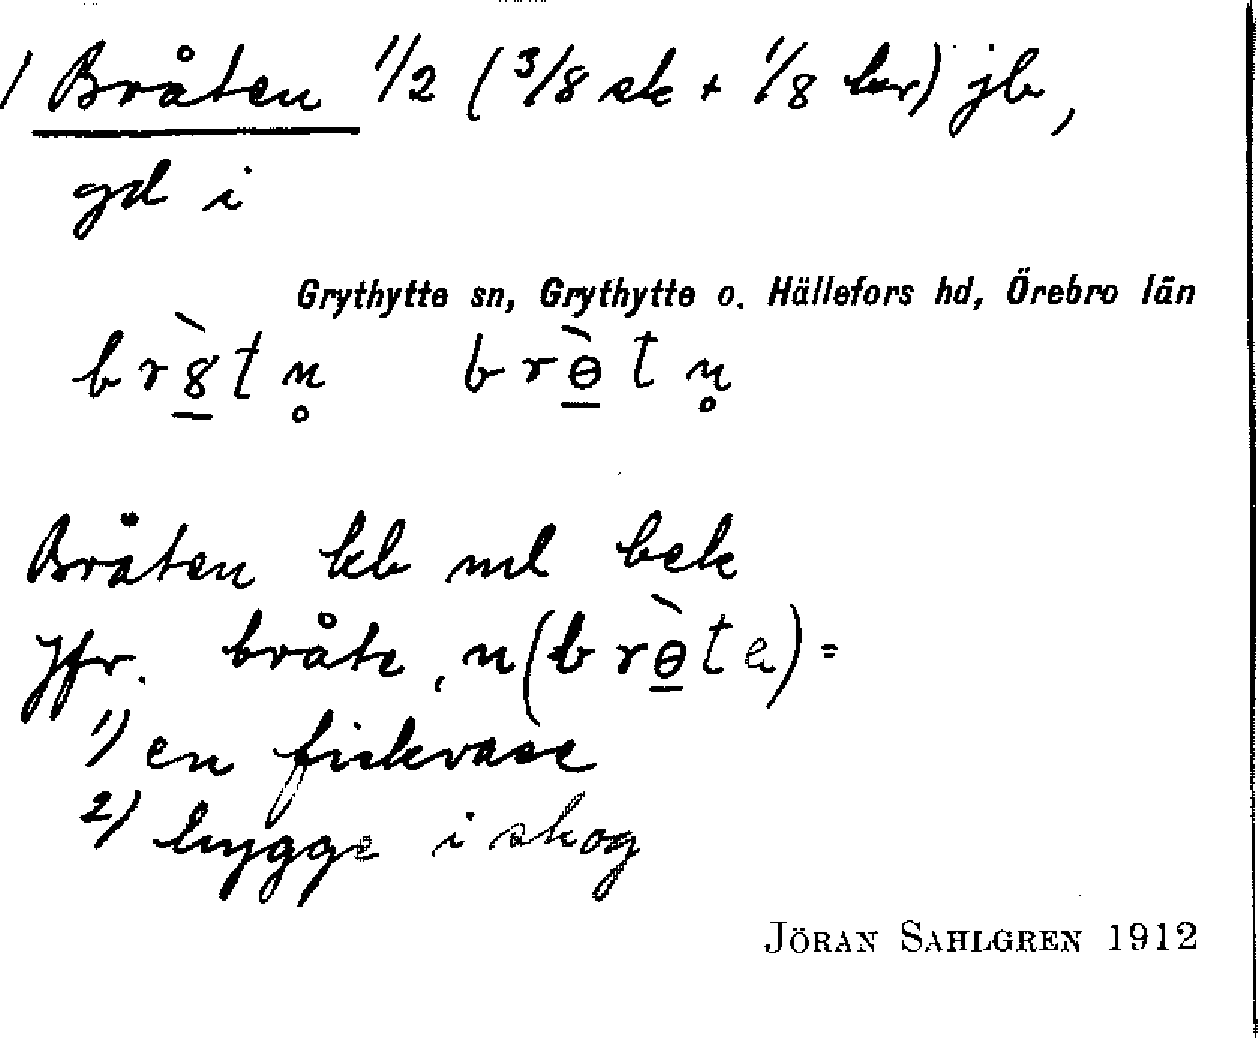 1) Bråten 1/2 (3/8 sk + 1/8 kr) jb,
gd i
Grythytte sn, Grythytte o. Hällefors hd, Örebro län
br8̲̀tn̥ brɵ̲̀tn̥
Bråten kb ml bek
Jfr. bråte, n (brɵ̲̀ta) =
1) en fiskvase
2) hygge i skog
JÖRAN SAHLGREN 1912